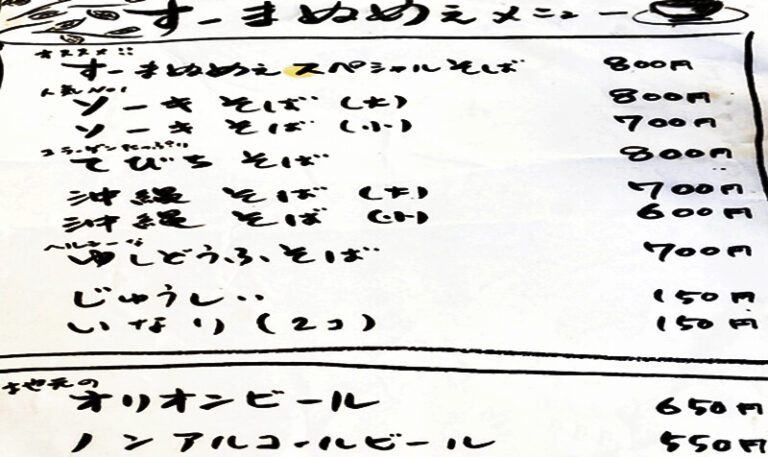 すーまぬめぇメニュー
オススメ!!
すーまぬめぇスペシャルそば 800円
人気No1
ソーキそば (大) 800円
ソーキそば (小) 700円
コラーゲンたっぷり
てびちそば 800円
沖縄そば (大) 700円
沖縄そば (小) 600円
ヘルシーな
ゆしどうふそば 700円
じゅうしぃ 150円
いなり (2コ) 150円
地元の
オリオンビール 650円
ノンアルコールビール 550円